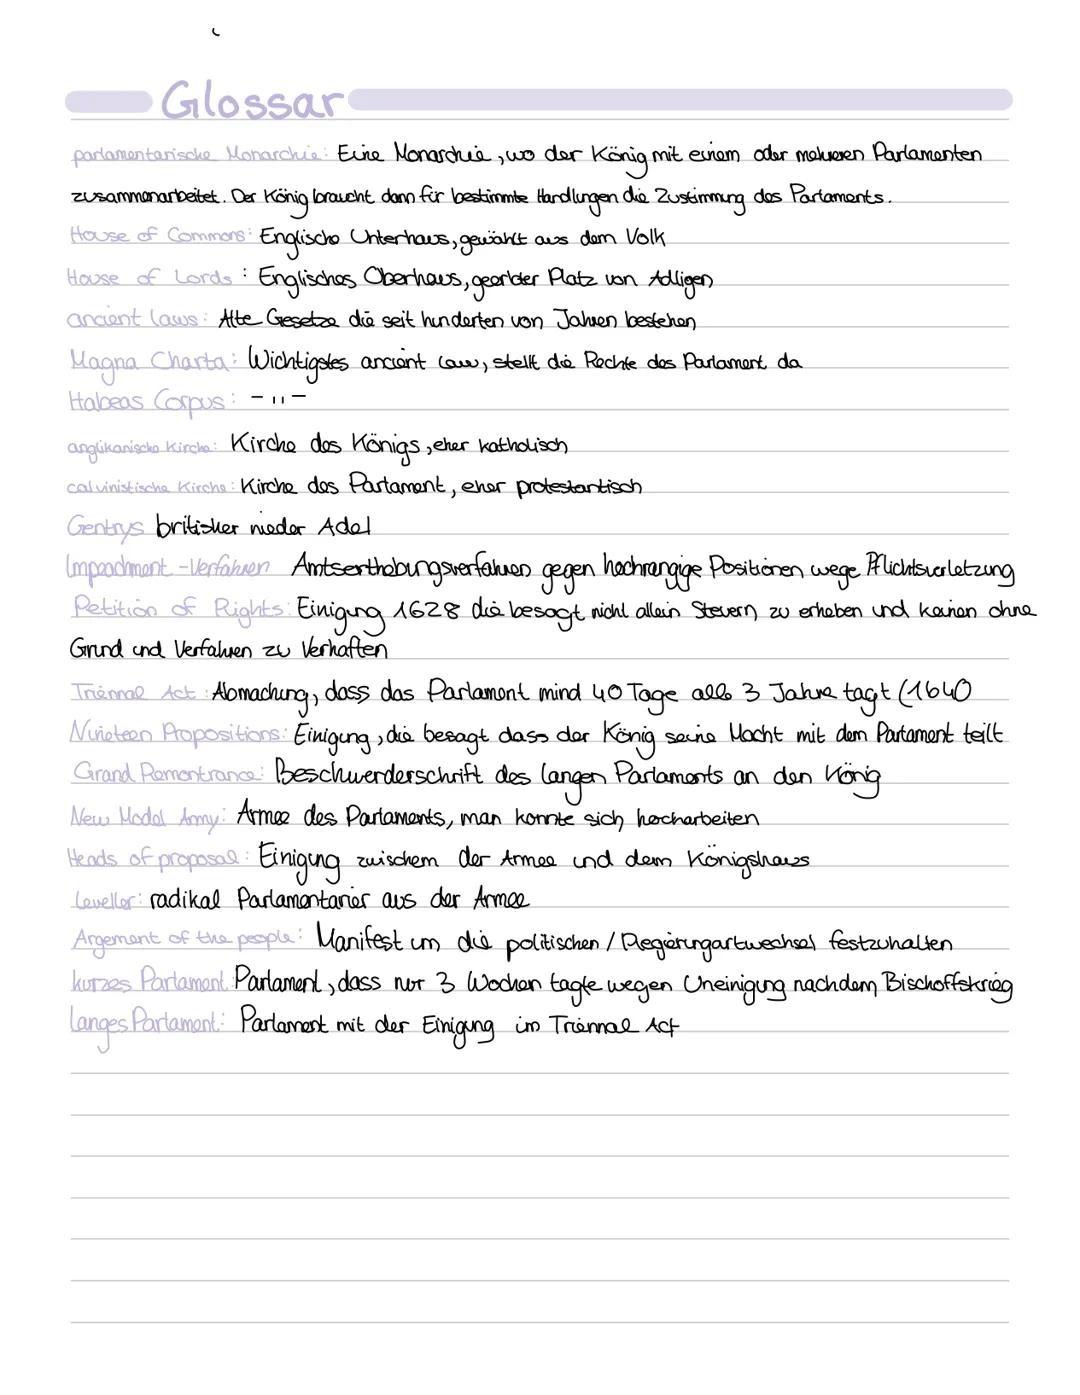 Glossar
parlamentarische Monarchie: Eine Monarchie, wo der König mit einem oder mehreren Parlamenten
zusammenarbeitet. Der König braucht dann für bestimmte Handlungen die Zustimmung des Parlaments.
House of Commons: Englische Unterhaus, gewählt aus dem Volk
House of Lords: Englisches Oberhaus, geerbter Platz von Adligen
ancient laws: Alte Gesetze die seit hunderten von Jahren bestehen
Magna Charta: Wichtigstes ancient law, stellt die Rechte des Parlament da
Habeas Corpus: - " -
anglikanische Kirche: Kirche des Königs, eher katholisch
calvinistische Kirche: Kirche des Parlament, eher protestantisch
Gentrys britisher nieder Adel
Impeachment-Verfahren Amtserthebungsverfahren gegen hochrangige Positionen wege Pflichtsverletzung
Petition of Rights: Einigung 1628 die besagt nicht allein Steuern zu erheben und keinen ohne
Grund und Verfahren zu Verhaften
Triennal Act: Abmachung, dass das Parlament mind 40 Tage alle 3 Jahre tagt (1640
Nineteen Propositions: Einigung, die besagt dass der König seine Macht mit dem Parlament teilt
Grand Remontrance: Beschwerderschrift des langen Parlaments an den König
New Model Army: Armee des Parlaments, man konnte sich hocharbeiten
Heads of proposal: Einigung zwischem der Armee und dem Königshaus
Leveller: radikal Parlamentarier aus der Armee
Argement of the people: Manifest um die politischen / Regierungartwechsel festzuhalten
kurzes Parlament: Parlament, dass nur 3 Wochen tagte wegen Uneinigung nachdem Bischoffskrieg
Langes Parlament: Parlament mit der Einigung im Triennal Act